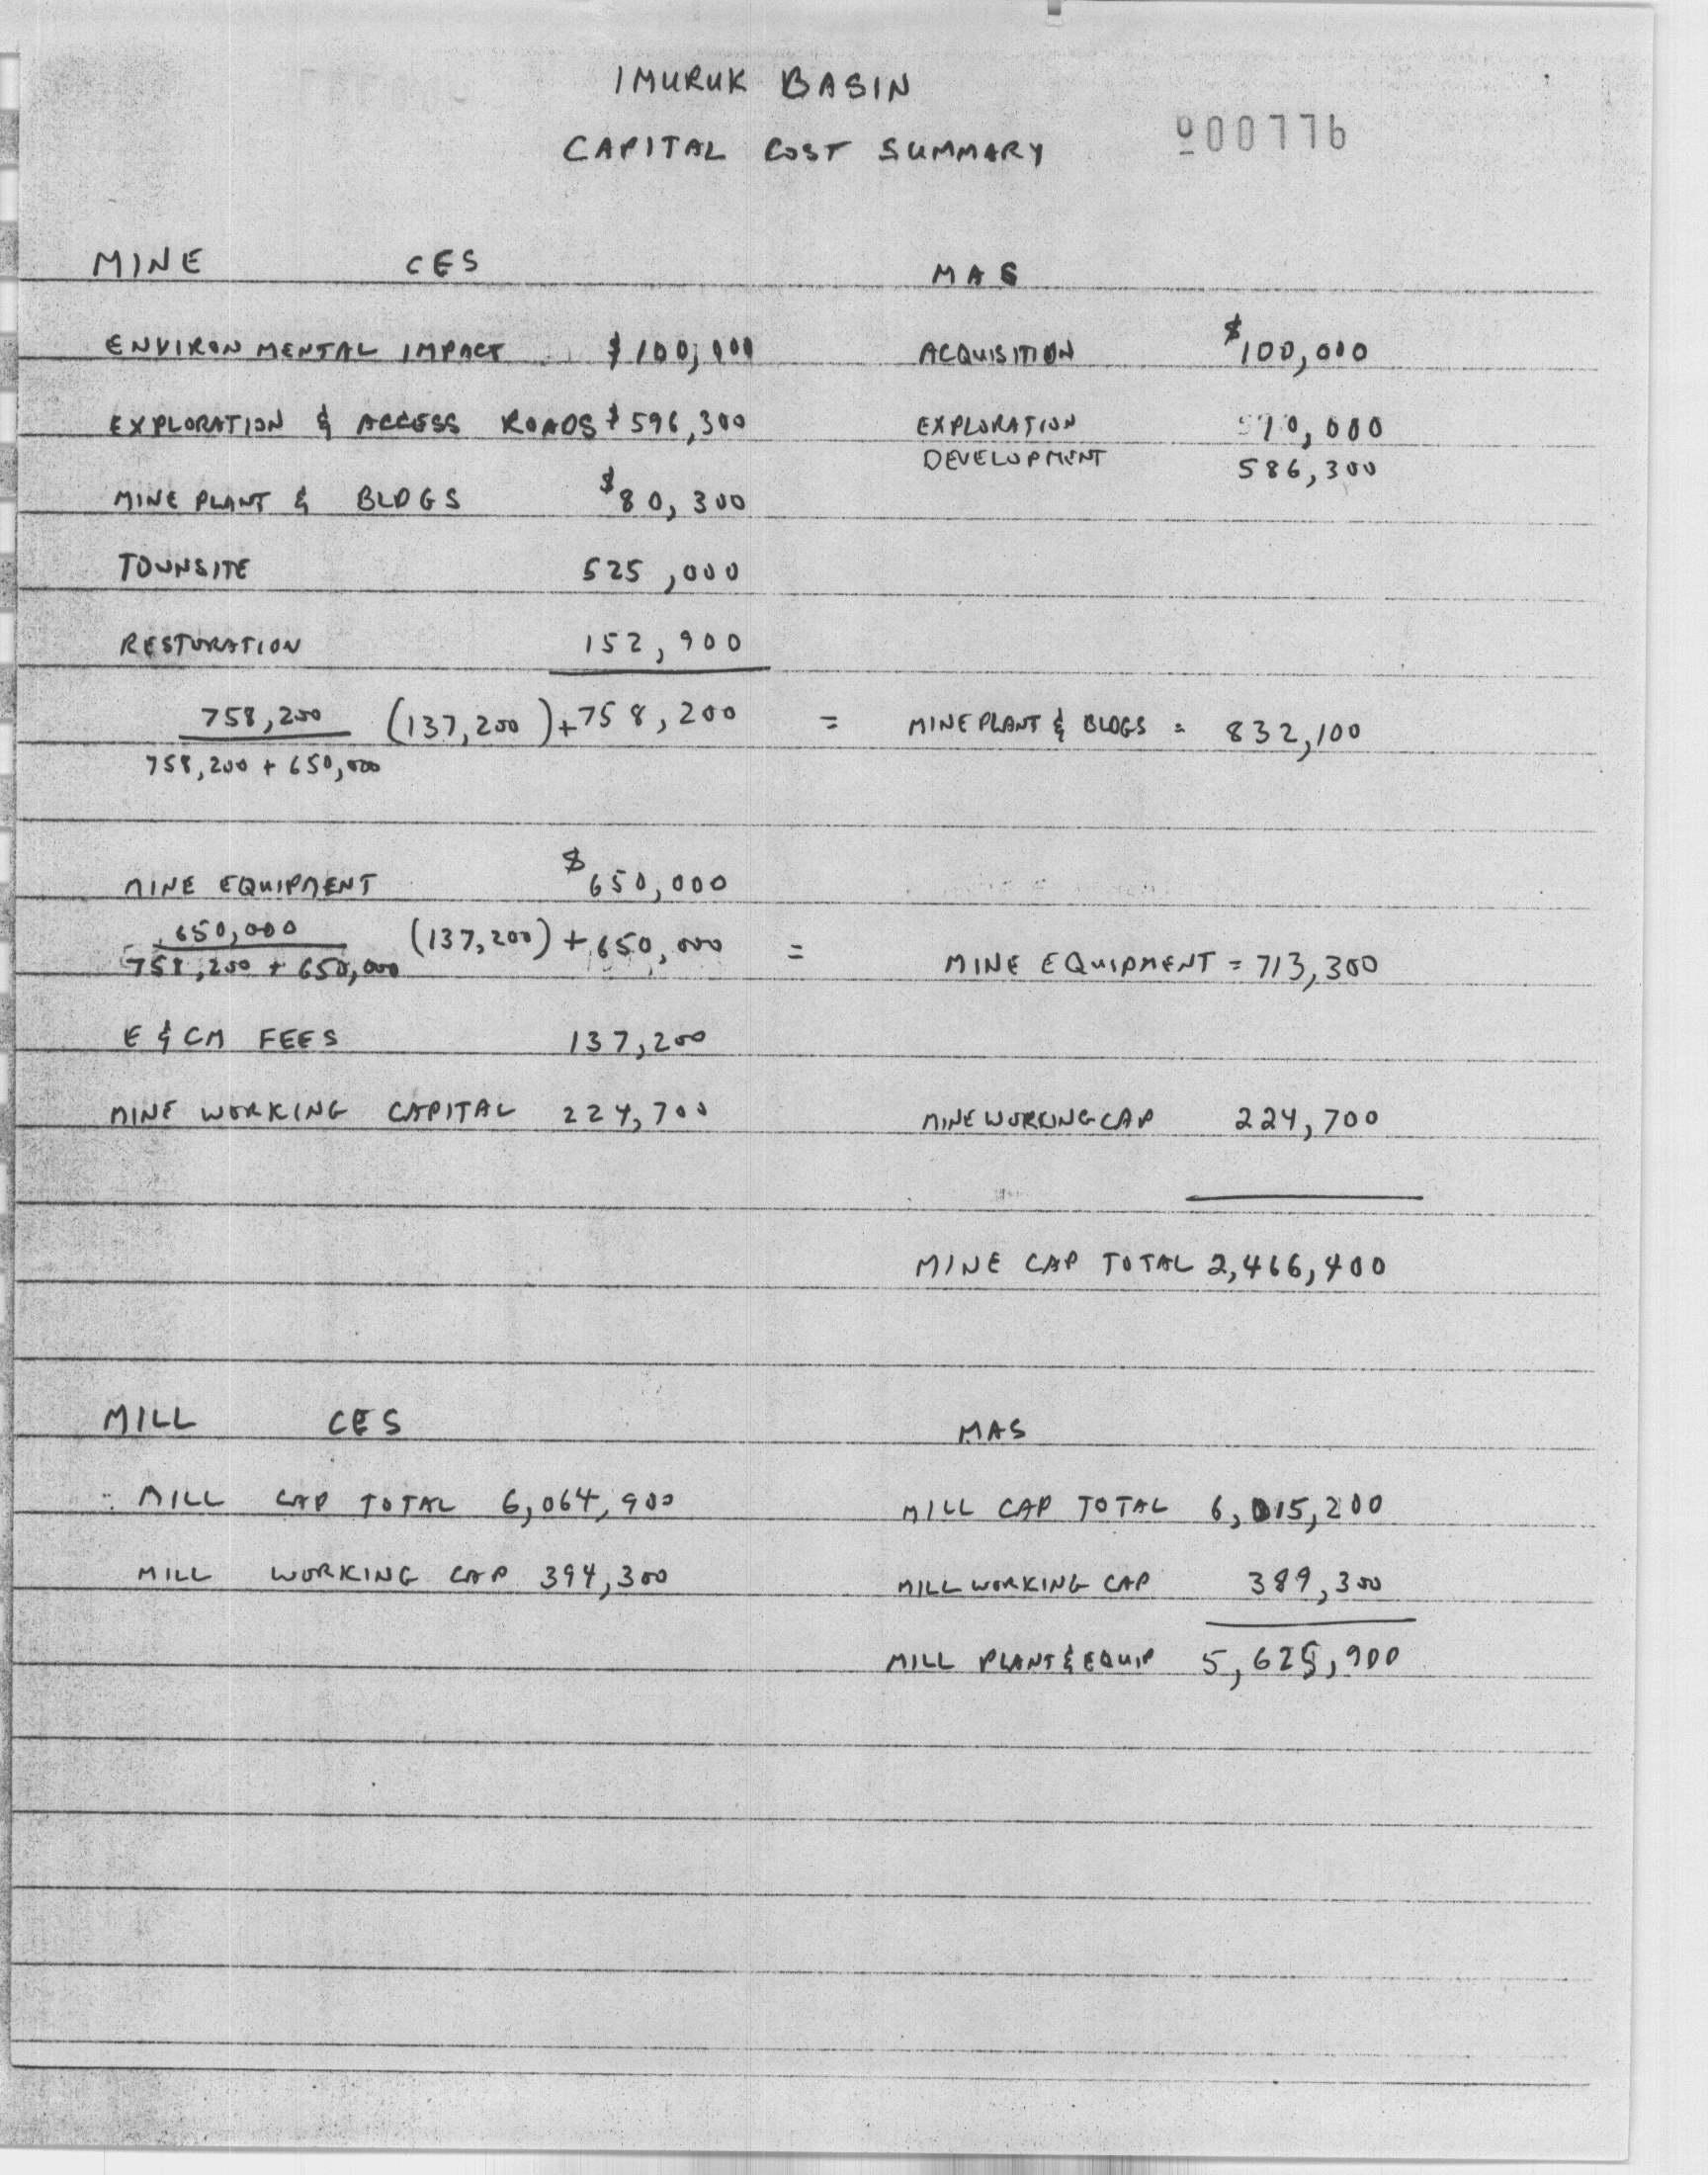 IMURUK BASIN
CAPITAL COST SUMMARY 000776
MINE CES MAS
ENVIRONMENTAL IMPACT $100,000 ACQUISITION $100,000
EXPLORATION & ACCESS ROADS $596,300 EXPLORATION 10,000
DEVELOPMENT 586,300
MINE PLANT & BLDGS $80,300
TOWNSITE 525,000
RESTORATION 152,900
758,200 / 758,200 + 650,000 (137,200) + 758,200 = MINE PLANT & BLDGS = 832,100
MINE EQUIPMENT $650,000
650,000 / 758,200 + 650,000 (137,200) + 650,000 = MINE EQUIPMENT = 713,300
E & CM FEES 137,200
MINE WORKING CAPITAL 224,700 MINE WORKING CAP 224,700
MINE CAP TOTAL 2,466,400
MILL CES MAS
MILL CAP TOTAL 6,064,900 MILL CAP TOTAL 6,015,200
MILL WORKING CAP 394,300 MILL WORKING CAP 389,300
MILL PLANT & EQUIP 5,625,900